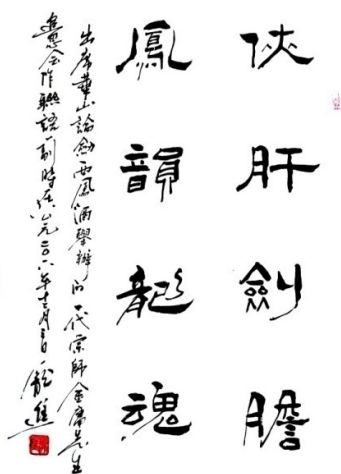 俠肝劍膽
鳳韻龍魂
出席華山論劍西鳳酒舉辦的一代宗師金庸先生
追思会作聯語一副時在公元二〇一八年十月日